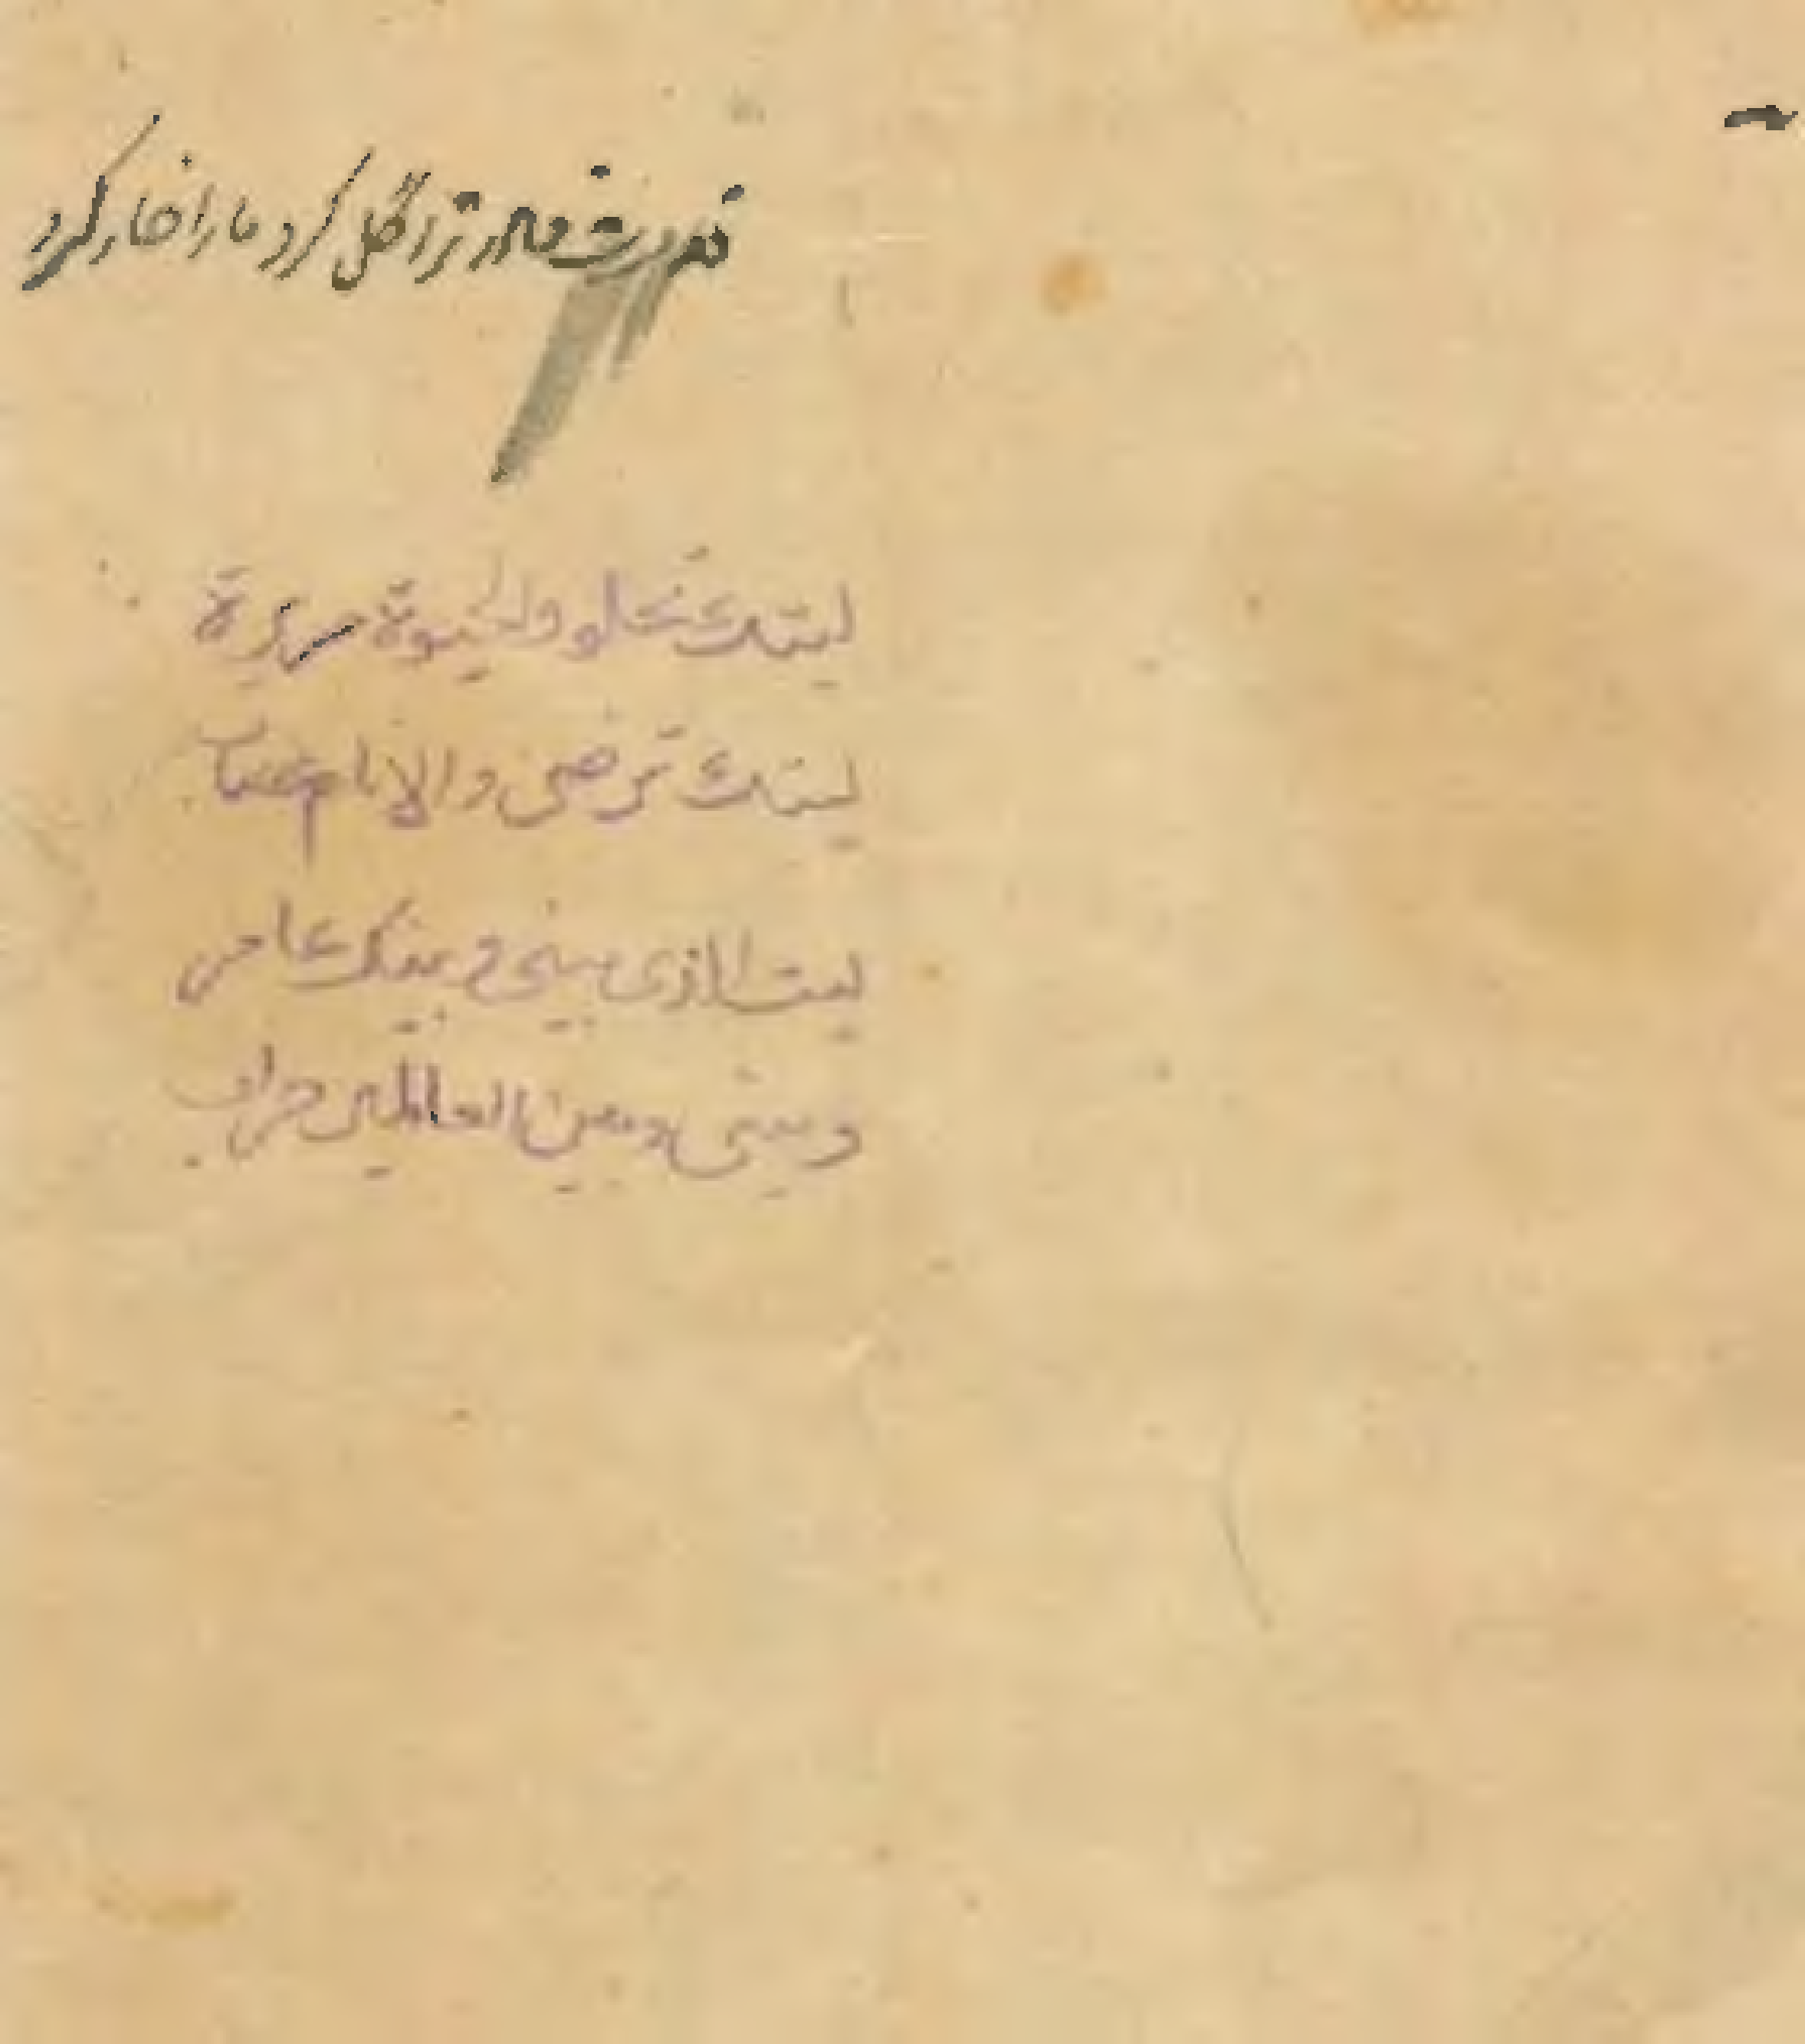 ترا گل کرد ما را خار کرد
ليتك تحلو والحيوة مريرة
ليتك ترضى والانام غضاب
ليت الذى بينى و بينك عامر
و بينى و بين العالمين خراب